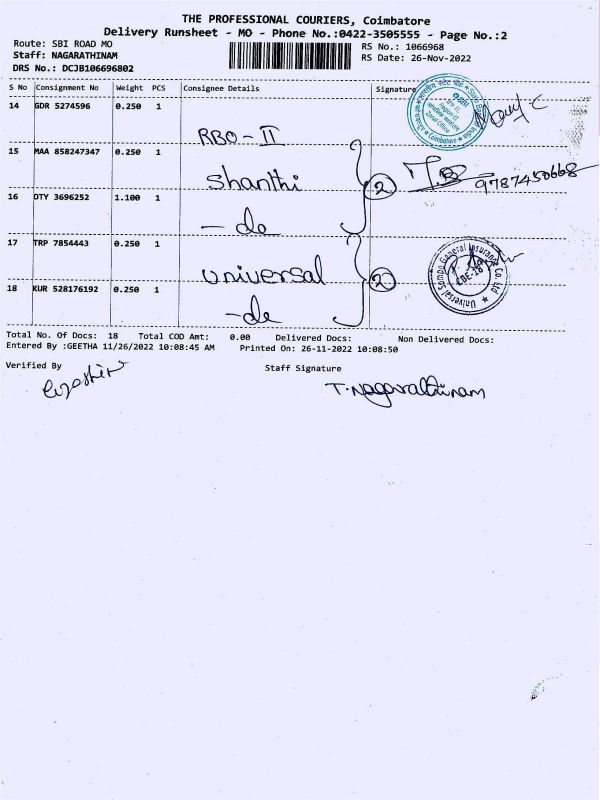 THE PROFESSIONAL COURIERS, Coimbatore
Delivery Runsheet - MO - Phone No.:0422-3505555 - Page No.:2
Route: SBI ROAD MO
Staff: NAGARATHINAM
DRS No.: DCJB106696802
RS No.: 1066968
RS Date: 26-Nov-2022
S No Consignment No Weight PCS Consignee Details Signature
14 GDR 5274596 0.250 1
RBO - II
15 MAA 858247347 0.250 1
Shanthi 2 9787450668
16 DTY 3696252 1.100 1
- do
17 TRP 7854443 0.250 1
universal 2
Universal Sompo General Insurance Co. Ltd
18 KUR 528176192 0.250 1
- do
Total No. Of Docs: 18 Total COD Amt: 0.00 Delivered Docs: Non Delivered Docs:
Entered By :GEETHA 11/26/2022 10:08:45 AM Printed On: 26-11-2022 10:08:50
Verified By Staff Signature
T. Nagarathinam